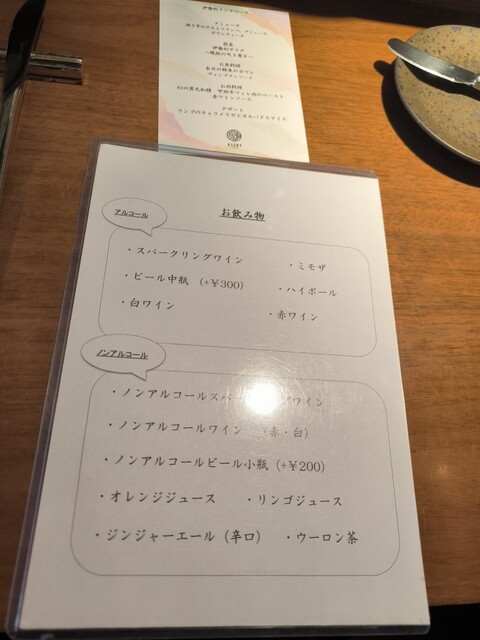 お飲み物
アルコール
・スパークリングワイン ・ミモザ
・ビール中瓶 (+¥300) ・ハイボール
・白ワイン ・赤ワイン
ノンアルコール
・ノンアルコールスパ ワイン
・ノンアルコールワイン (赤・白)
・ノンアルコールビール小瓶 (+¥200)
・オレンジジュース ・リンゴジュース
・ジンジャーエール (辛口) ・ウーロン茶
アミューズ
前菜
お魚料理
本日の鮮魚のポワレ
お肉料理
赤ワインソース
デザート